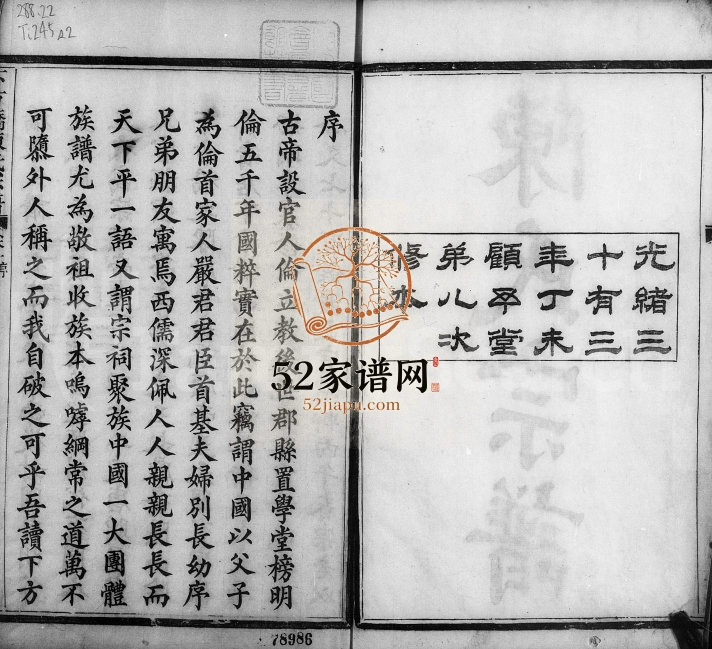 288.22
T.245
光緒三
十有三
年丁未
顧𠅤堂
弟八次
修本
序
古帝設官人倫立教後世郡縣置學堂榜明
倫五千年國粹實在於此竊謂中國以父子
為倫首家人嚴君君臣首基夫婦別長幼序
兄弟朋友寓焉西儒深佩人人親親長長而
天下平一語又謂宗祠聚族中國一大團體
族譜尤為敬祖收族本嗚嘑綱常之道萬不
可隳外人稱之而我自破之可乎吾讀下方
52家谱网
52jiapu.com
78986